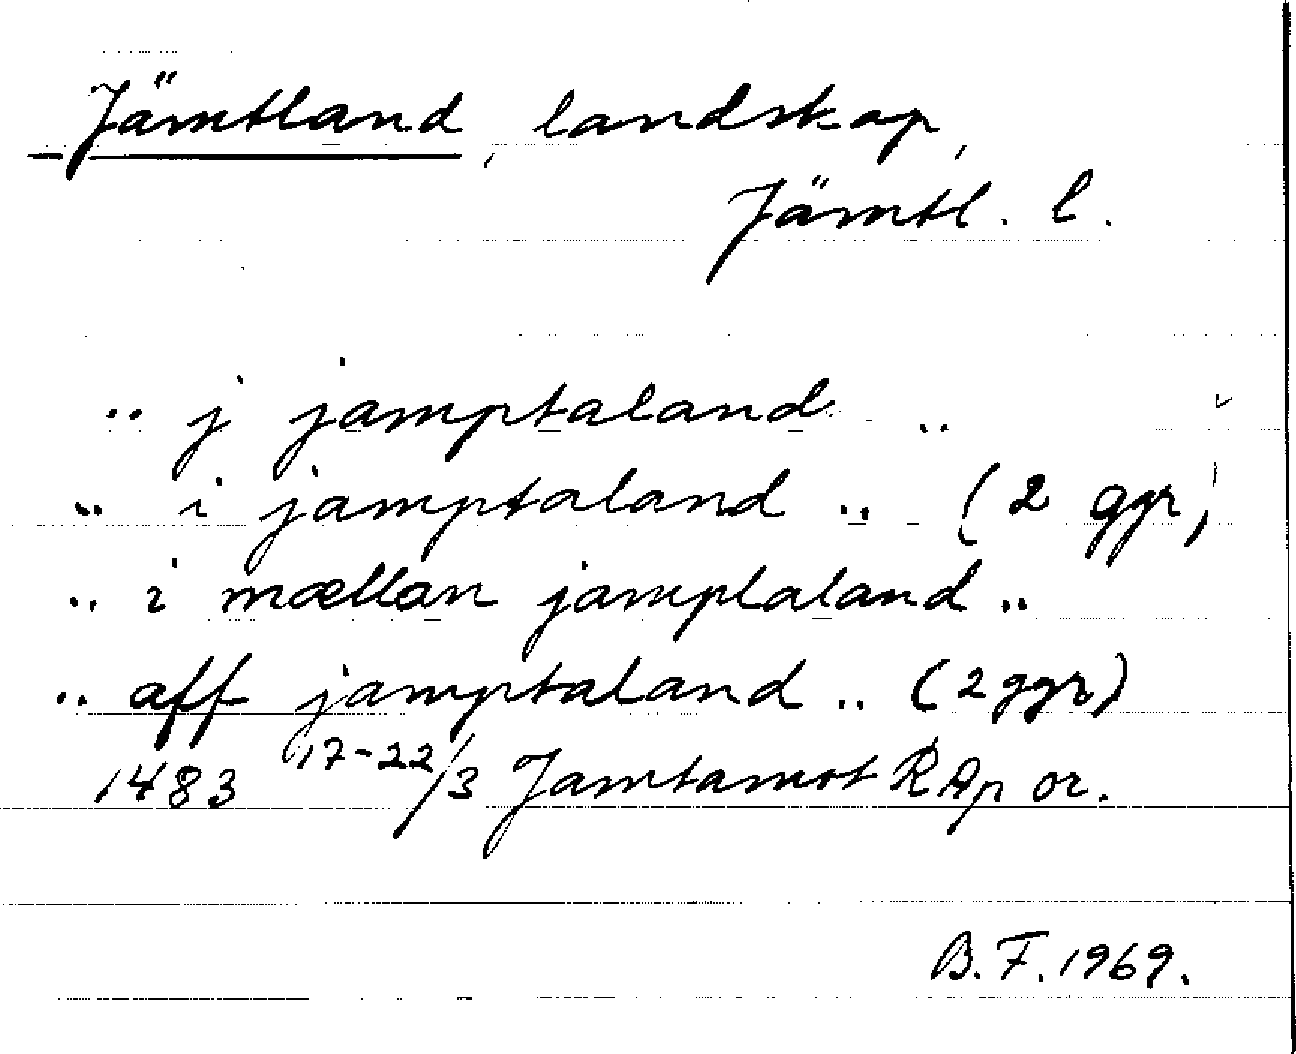 Jämtland, landskap,
Jämtl. l.
.. j jamptaland ..
.. i jamptaland .. (2 ggr)
.. i mællan jamptaland ..
.. aff jamptaland .. (2 ggr)
1483 17-22/3 Jamtamot RAp or.
B.F. 1969.